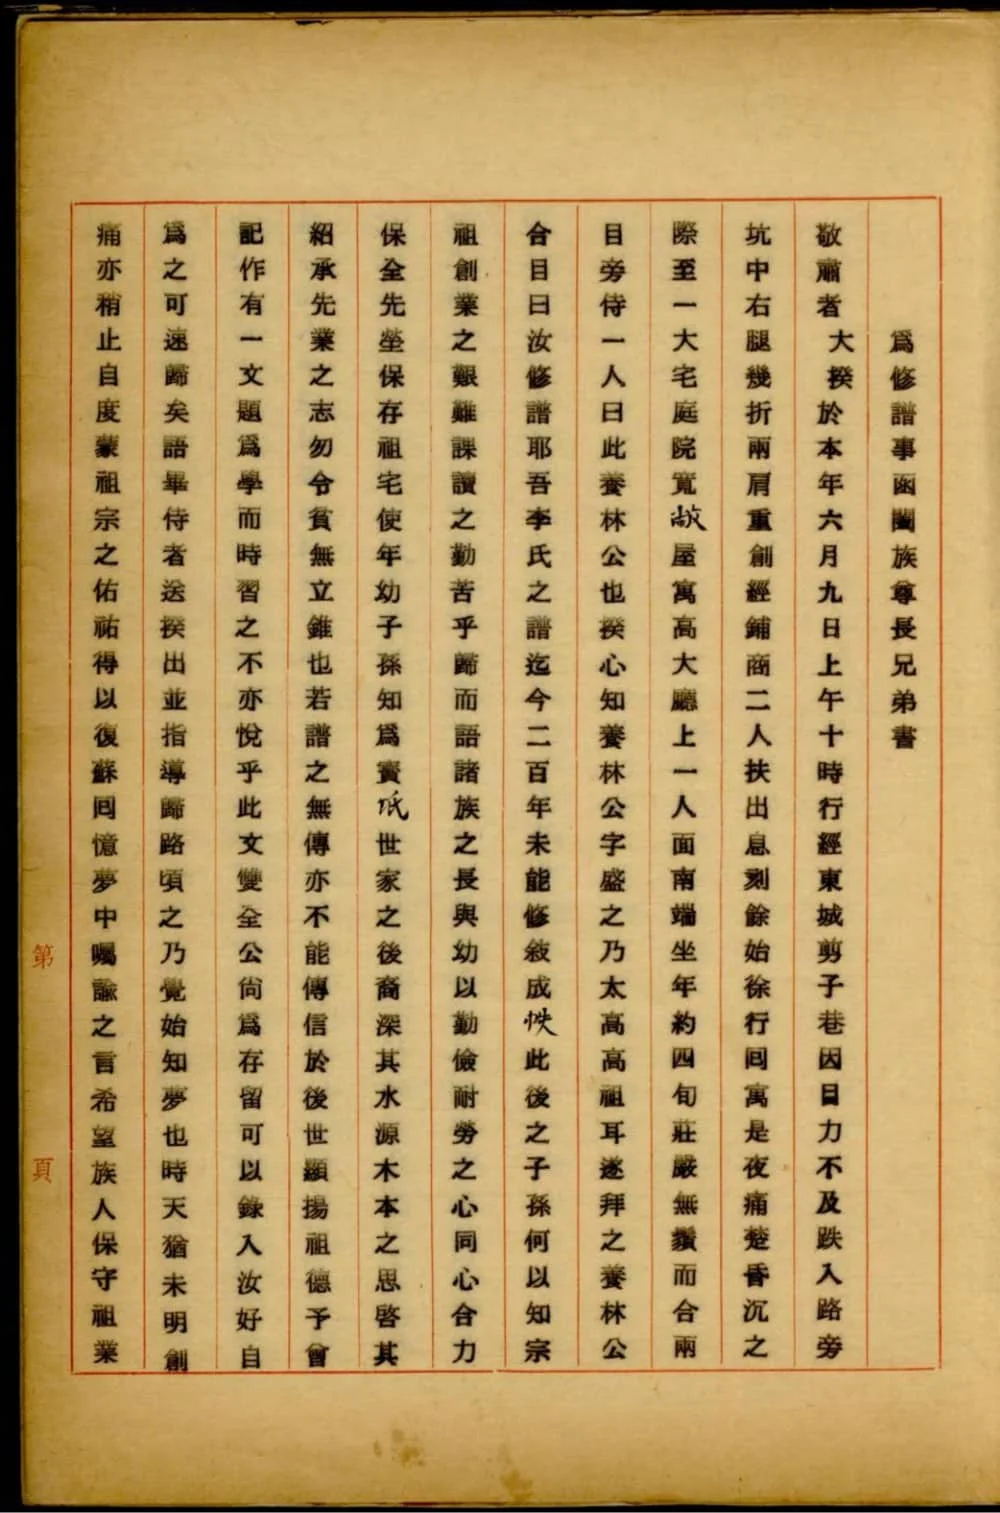 爲修譜事函闔族尊長兄弟書
敬肅者大揆於本年六月九日上午十時行經東城剪子巷因目力不及跌入路旁
坑中右腿幾折兩肩重創經鋪商二人扶出息刻餘始徐行囘寓是夜痛楚昏沉之
際至一大宅庭院寬敞屋寓高大廳上一人面南端坐年約四旬莊嚴無鬚而合兩
目旁侍一人曰此養林公也揆心知養林公字盛之乃太高高祖耳遂拜之養林公
合目曰汝修譜耶吾李氏之譜迄今二百年未能修敍成帙此後之子孫何以知宗
祖創業之艱難課讀之勤苦乎歸而語諸族之長與幼以勤儉耐勞之心同心合力
保全先塋保存祖宅使年幼子孫知爲寶坻世家之後裔深其水源木本之思啓其
紹承先業之志勿令貧無立錐也若譜之無傳亦不能傳信於後世顯揚祖德予曾
記作有一文題爲學而時習之不亦悅乎此文雙全公尙爲存留可以錄入汝好自
爲之可速歸矣語畢侍者送揆出並指導歸路頃之乃覺始知夢也時天猶未明創
痛亦稍止自度蒙祖宗之佑祐得以復蘇囘憶夢中囑諭之言希望族人保守祖業
第 頁